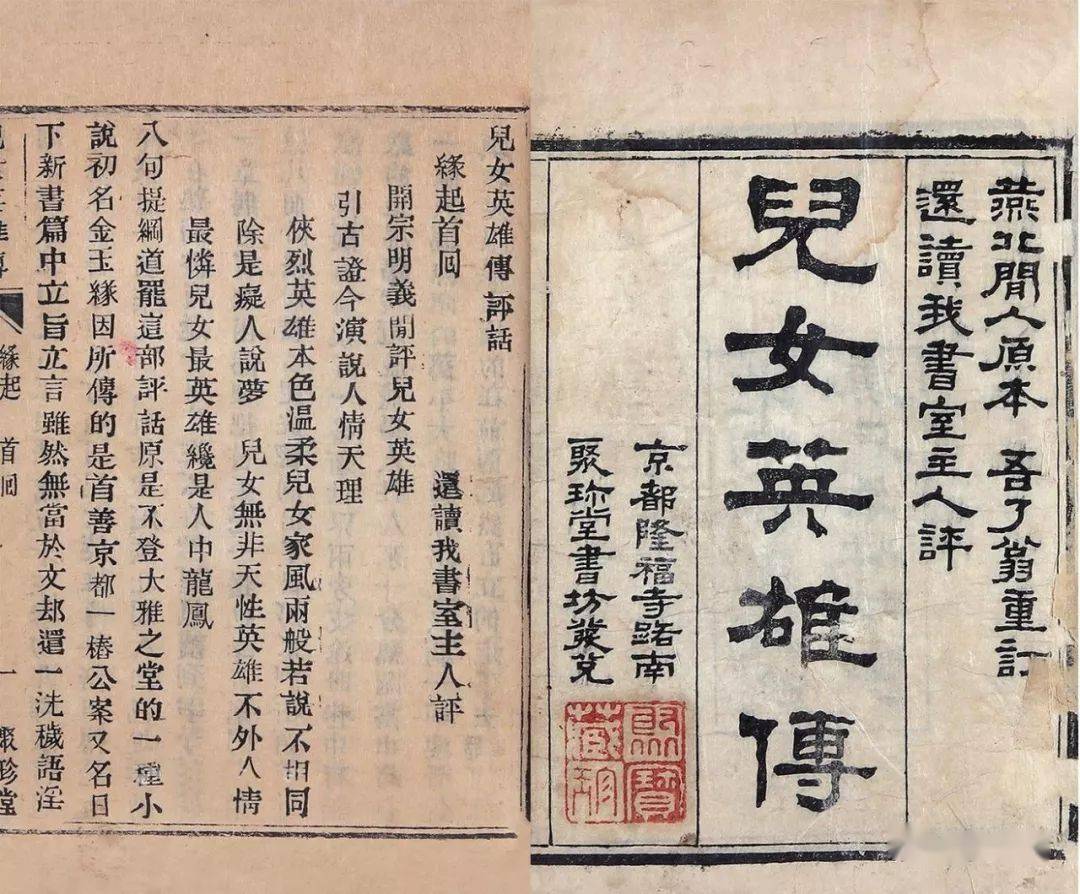 燕北閒人原本 吾了翁重訂
還讀我書室主人評
兒女英雄傳
京都隆福寺路南
聚珎堂書坊發兌
兒女英雄傳評話
緣起首回 還讀我書室主人評
開宗明義閒評兒女英雄
引古證今演說人情天理
俠烈英雄本色溫柔兒女家風兩般若說不相同
除是癡人說夢 兒女無非天性英雄不外人情
最憐兒女最英雄纔是人中龍鳳
八句提綱道罷這部評話原是不登大雅之堂的一種小
說初名金玉緣因所傳的是首善京都一樁公案又名日
下新書篇中立旨立言雖然無當於文却還一洗穢語淫
緣起 首回 一 聚珍堂